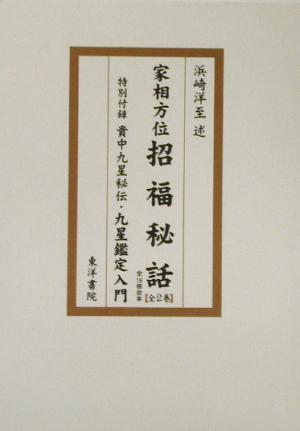 浜崎洋至 述
家相方位 招福秘話
全18冊合本
【全2巻】
特別付録 貴中九星秘伝・九星鑑定入門
東洋書院